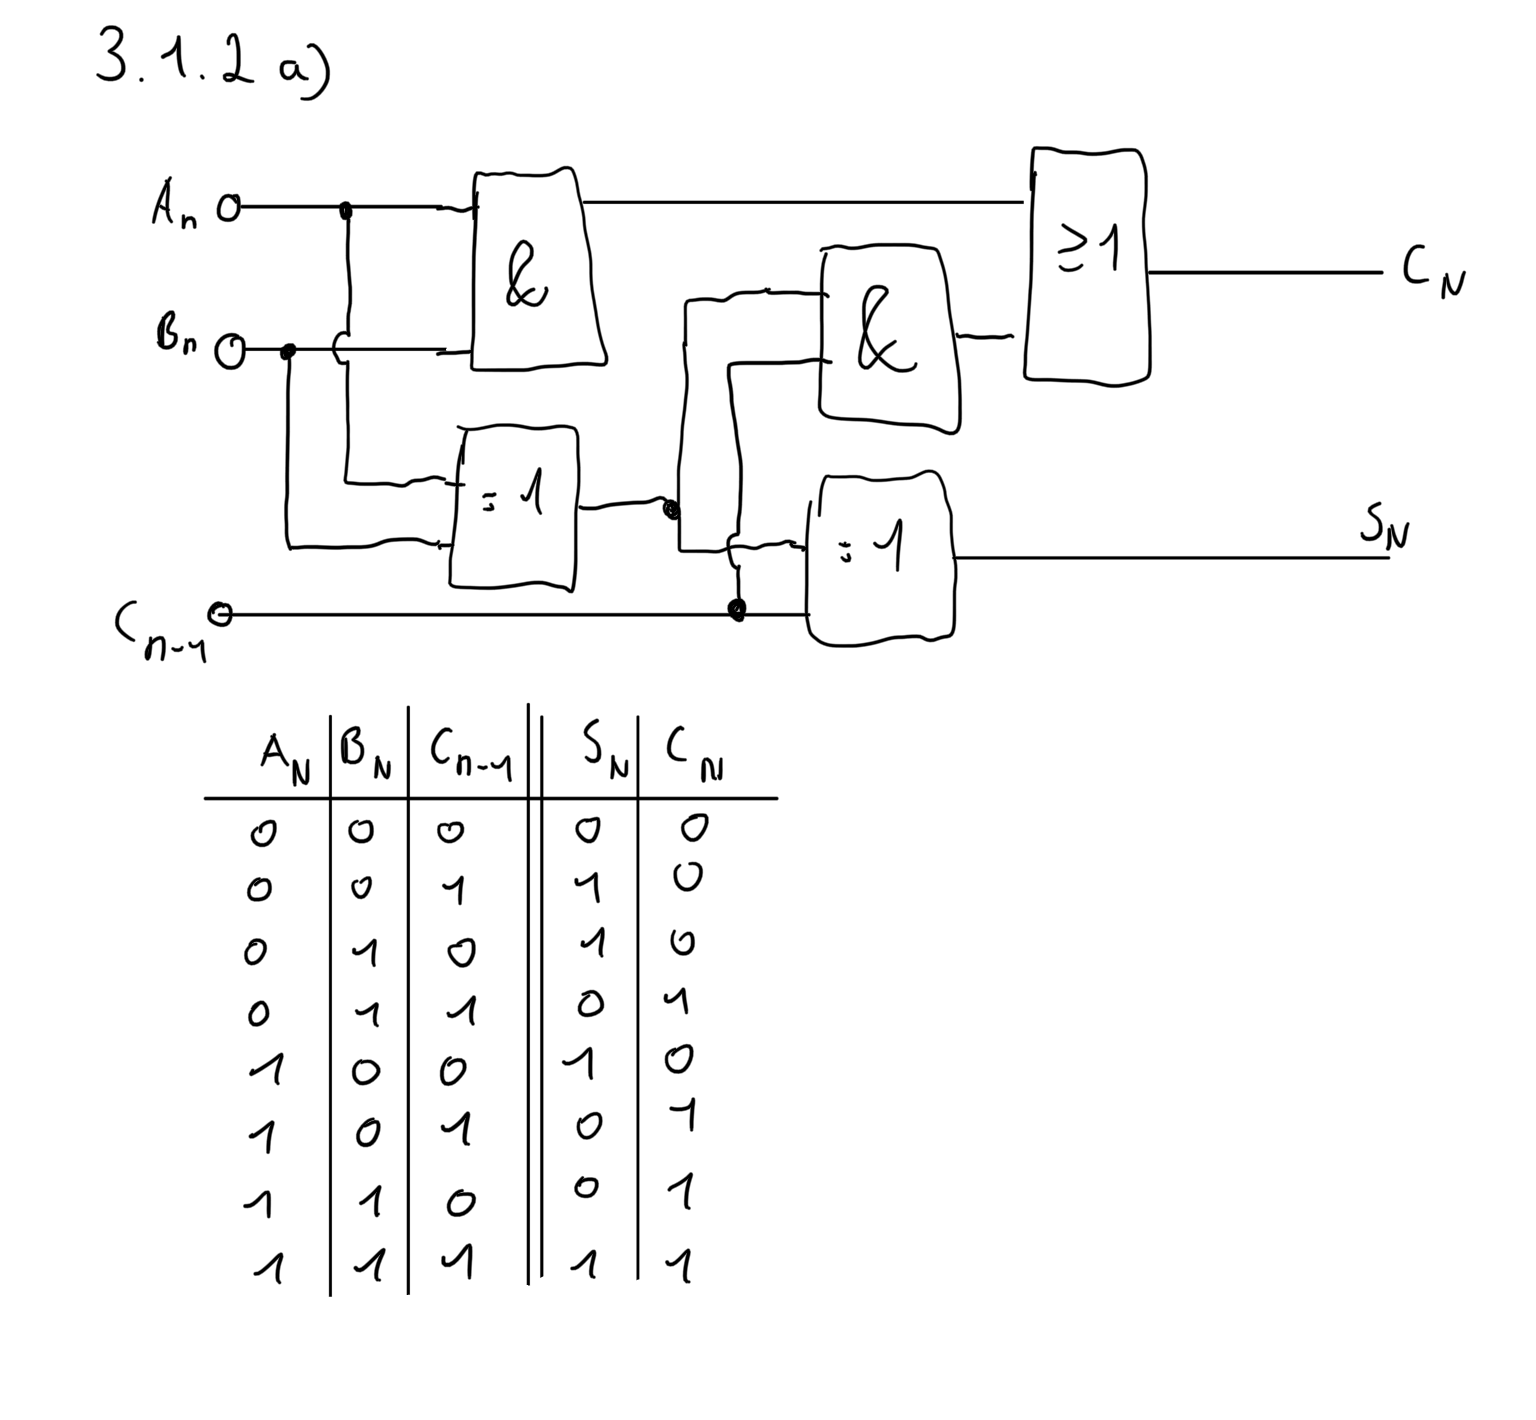 3.1.2 a)
An
Bn
Cn-1
&
=1
&
=1
≥1
CN
SN
AN BN Cn-1 SN CN
0 0 0 0 0
0 0 1 1 0
0 1 0 1 0
0 1 1 0 1
1 0 0 1 0
1 0 1 0 1
1 1 0 0 1
1 1 1 1 1